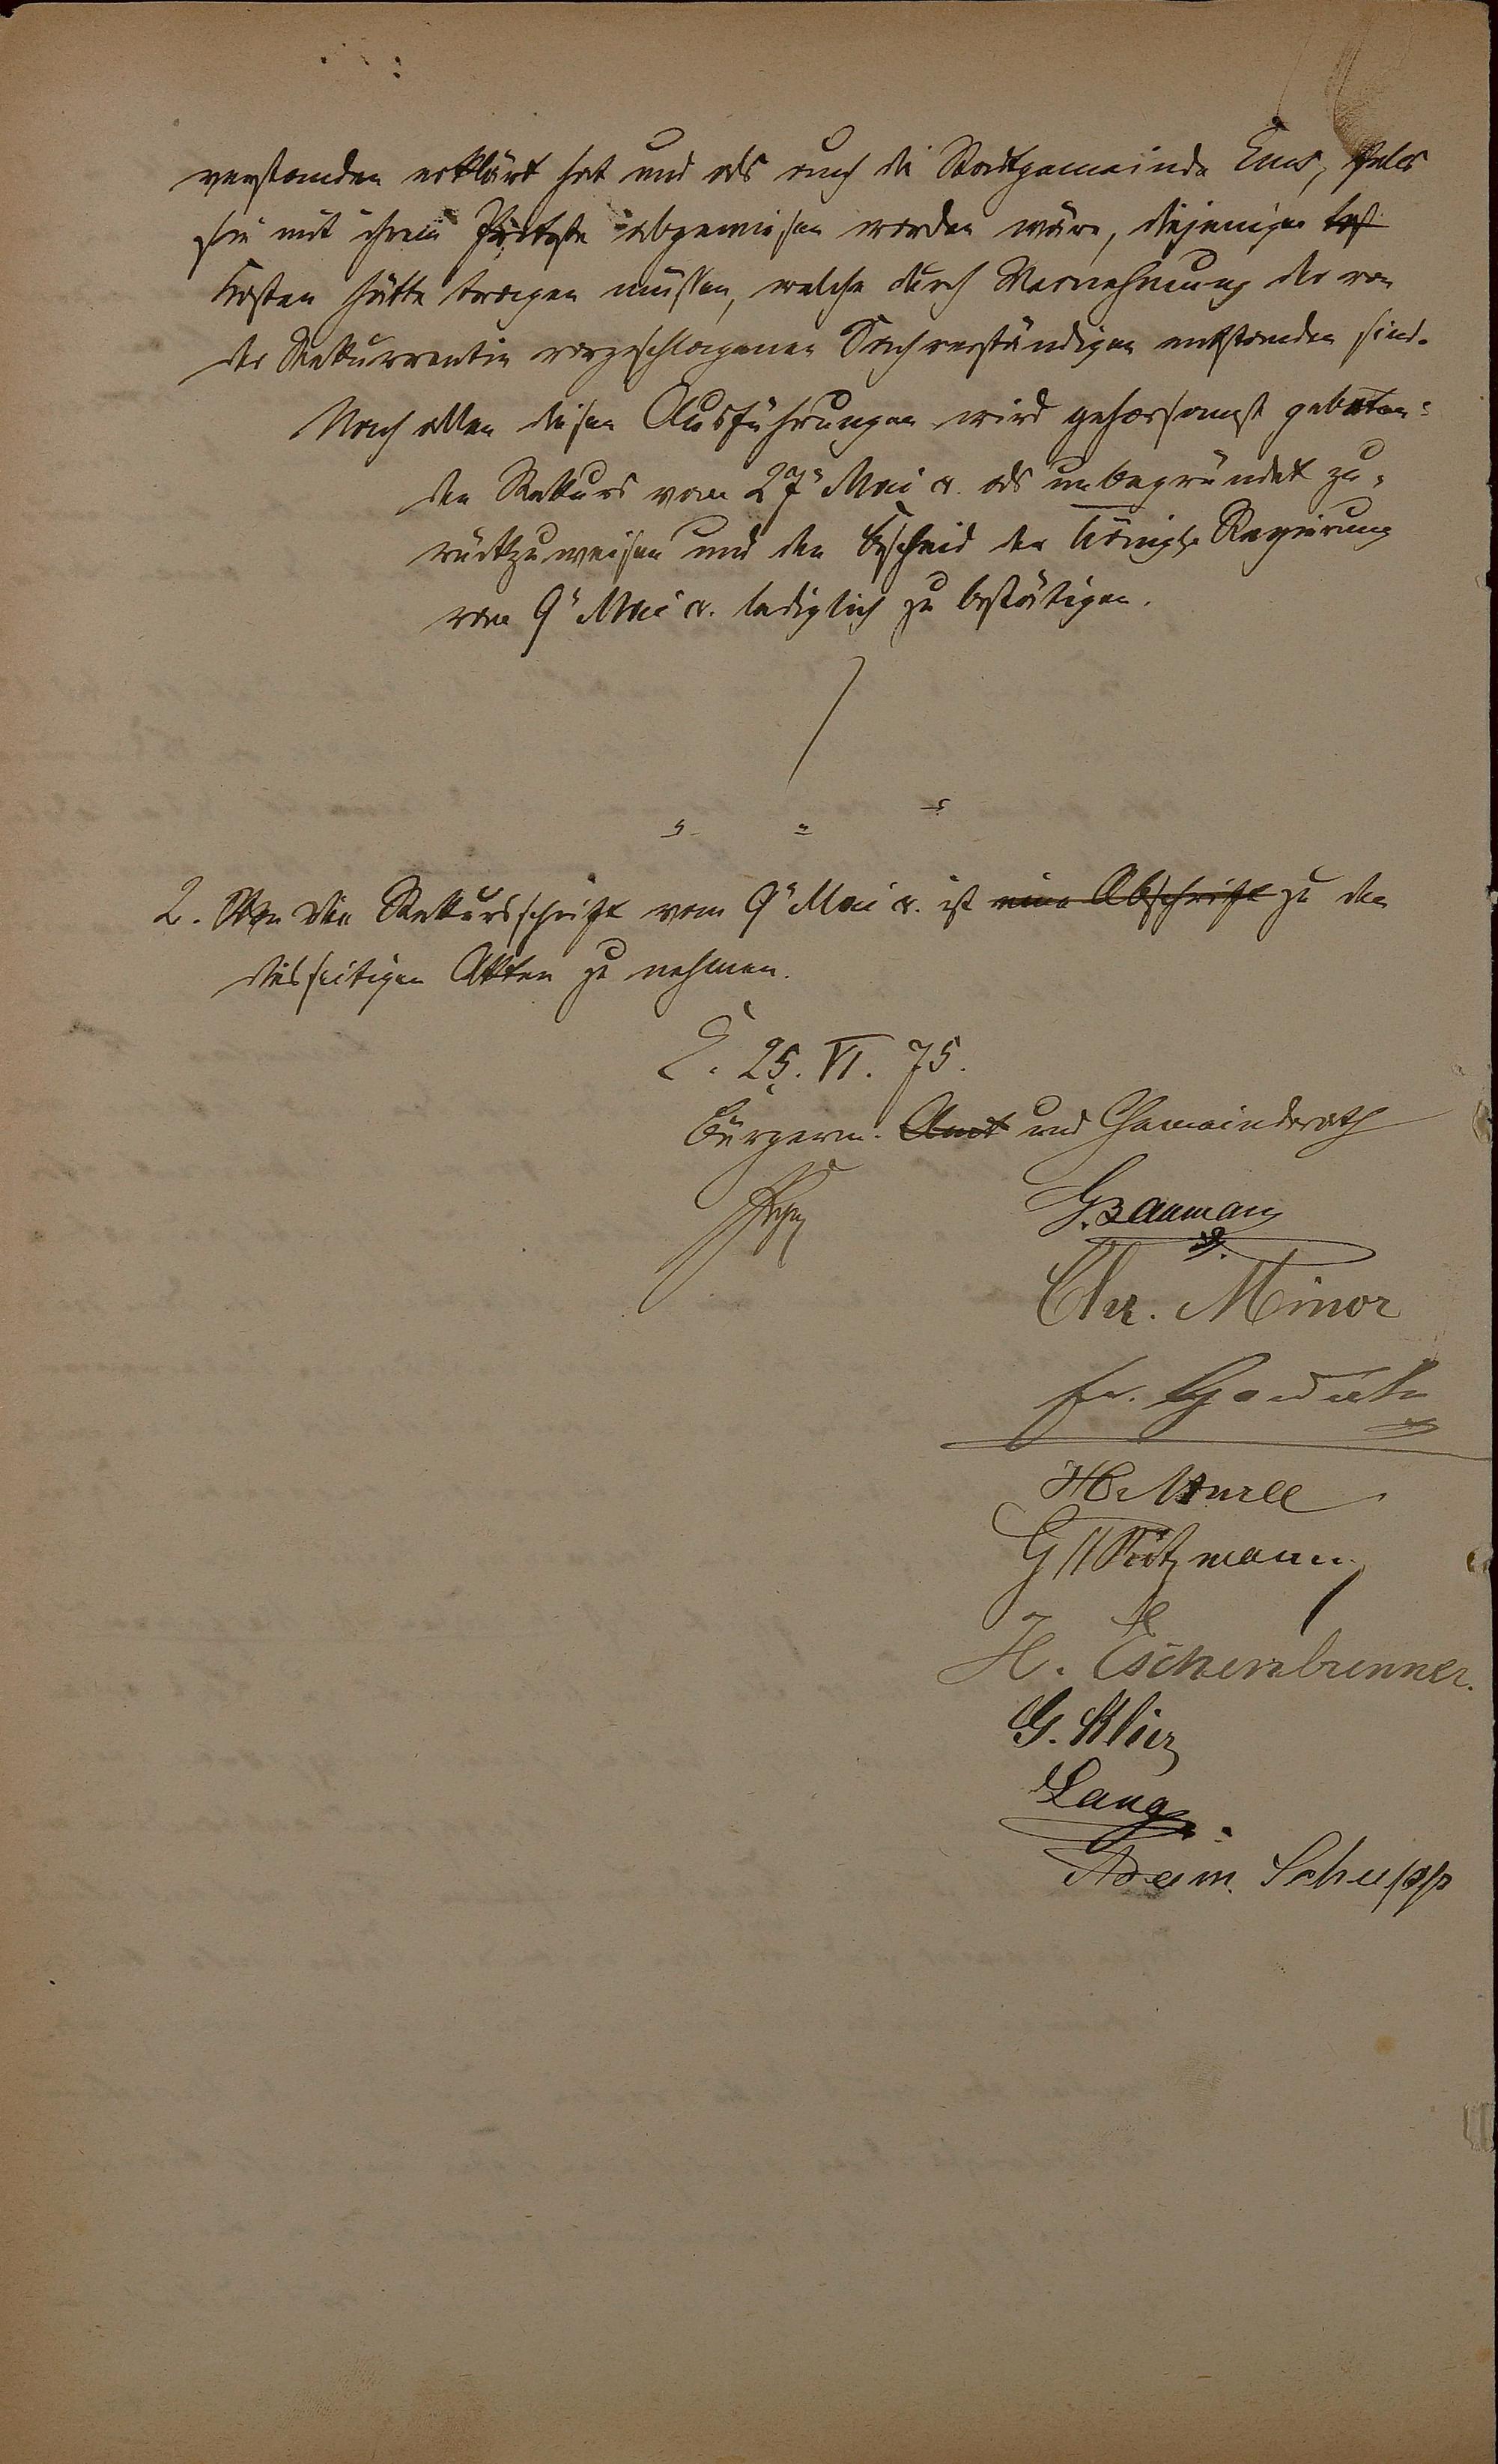 verstanden erklärt hat und als auch die Stadtgemeinde Ems, falls
sie mit ihrem Proteste abgewiesen worden wäre, diejenigen
Kosten hätte tragen müssen, welche durch Vernehmung der von
der Rekurrentin vorgeschlagenen Sachverständigen entstanden sind.
Nach allen diesen Ausführungen wird gehorsamst gebeten:
den Rekurs vom 27" Mai cr. als unbegründet zu-
rückzuweisen und den Bescheid der Königl. Regierung
vom 9" Mai cr. lediglich zu bestätigen.
2. Die Rekursschrift vom 9" Mai cr. ist eine Abschrift zu den
diesseitigen Akten zu nehmen.
E. 25. VI. 75.
Bürgerm. Amt und Gemeinderath
G. Baumann
Chr. Minor
Fr.
H.
G
H. Eschenbrenner.
G. Klier
Lang
Adam Schupp